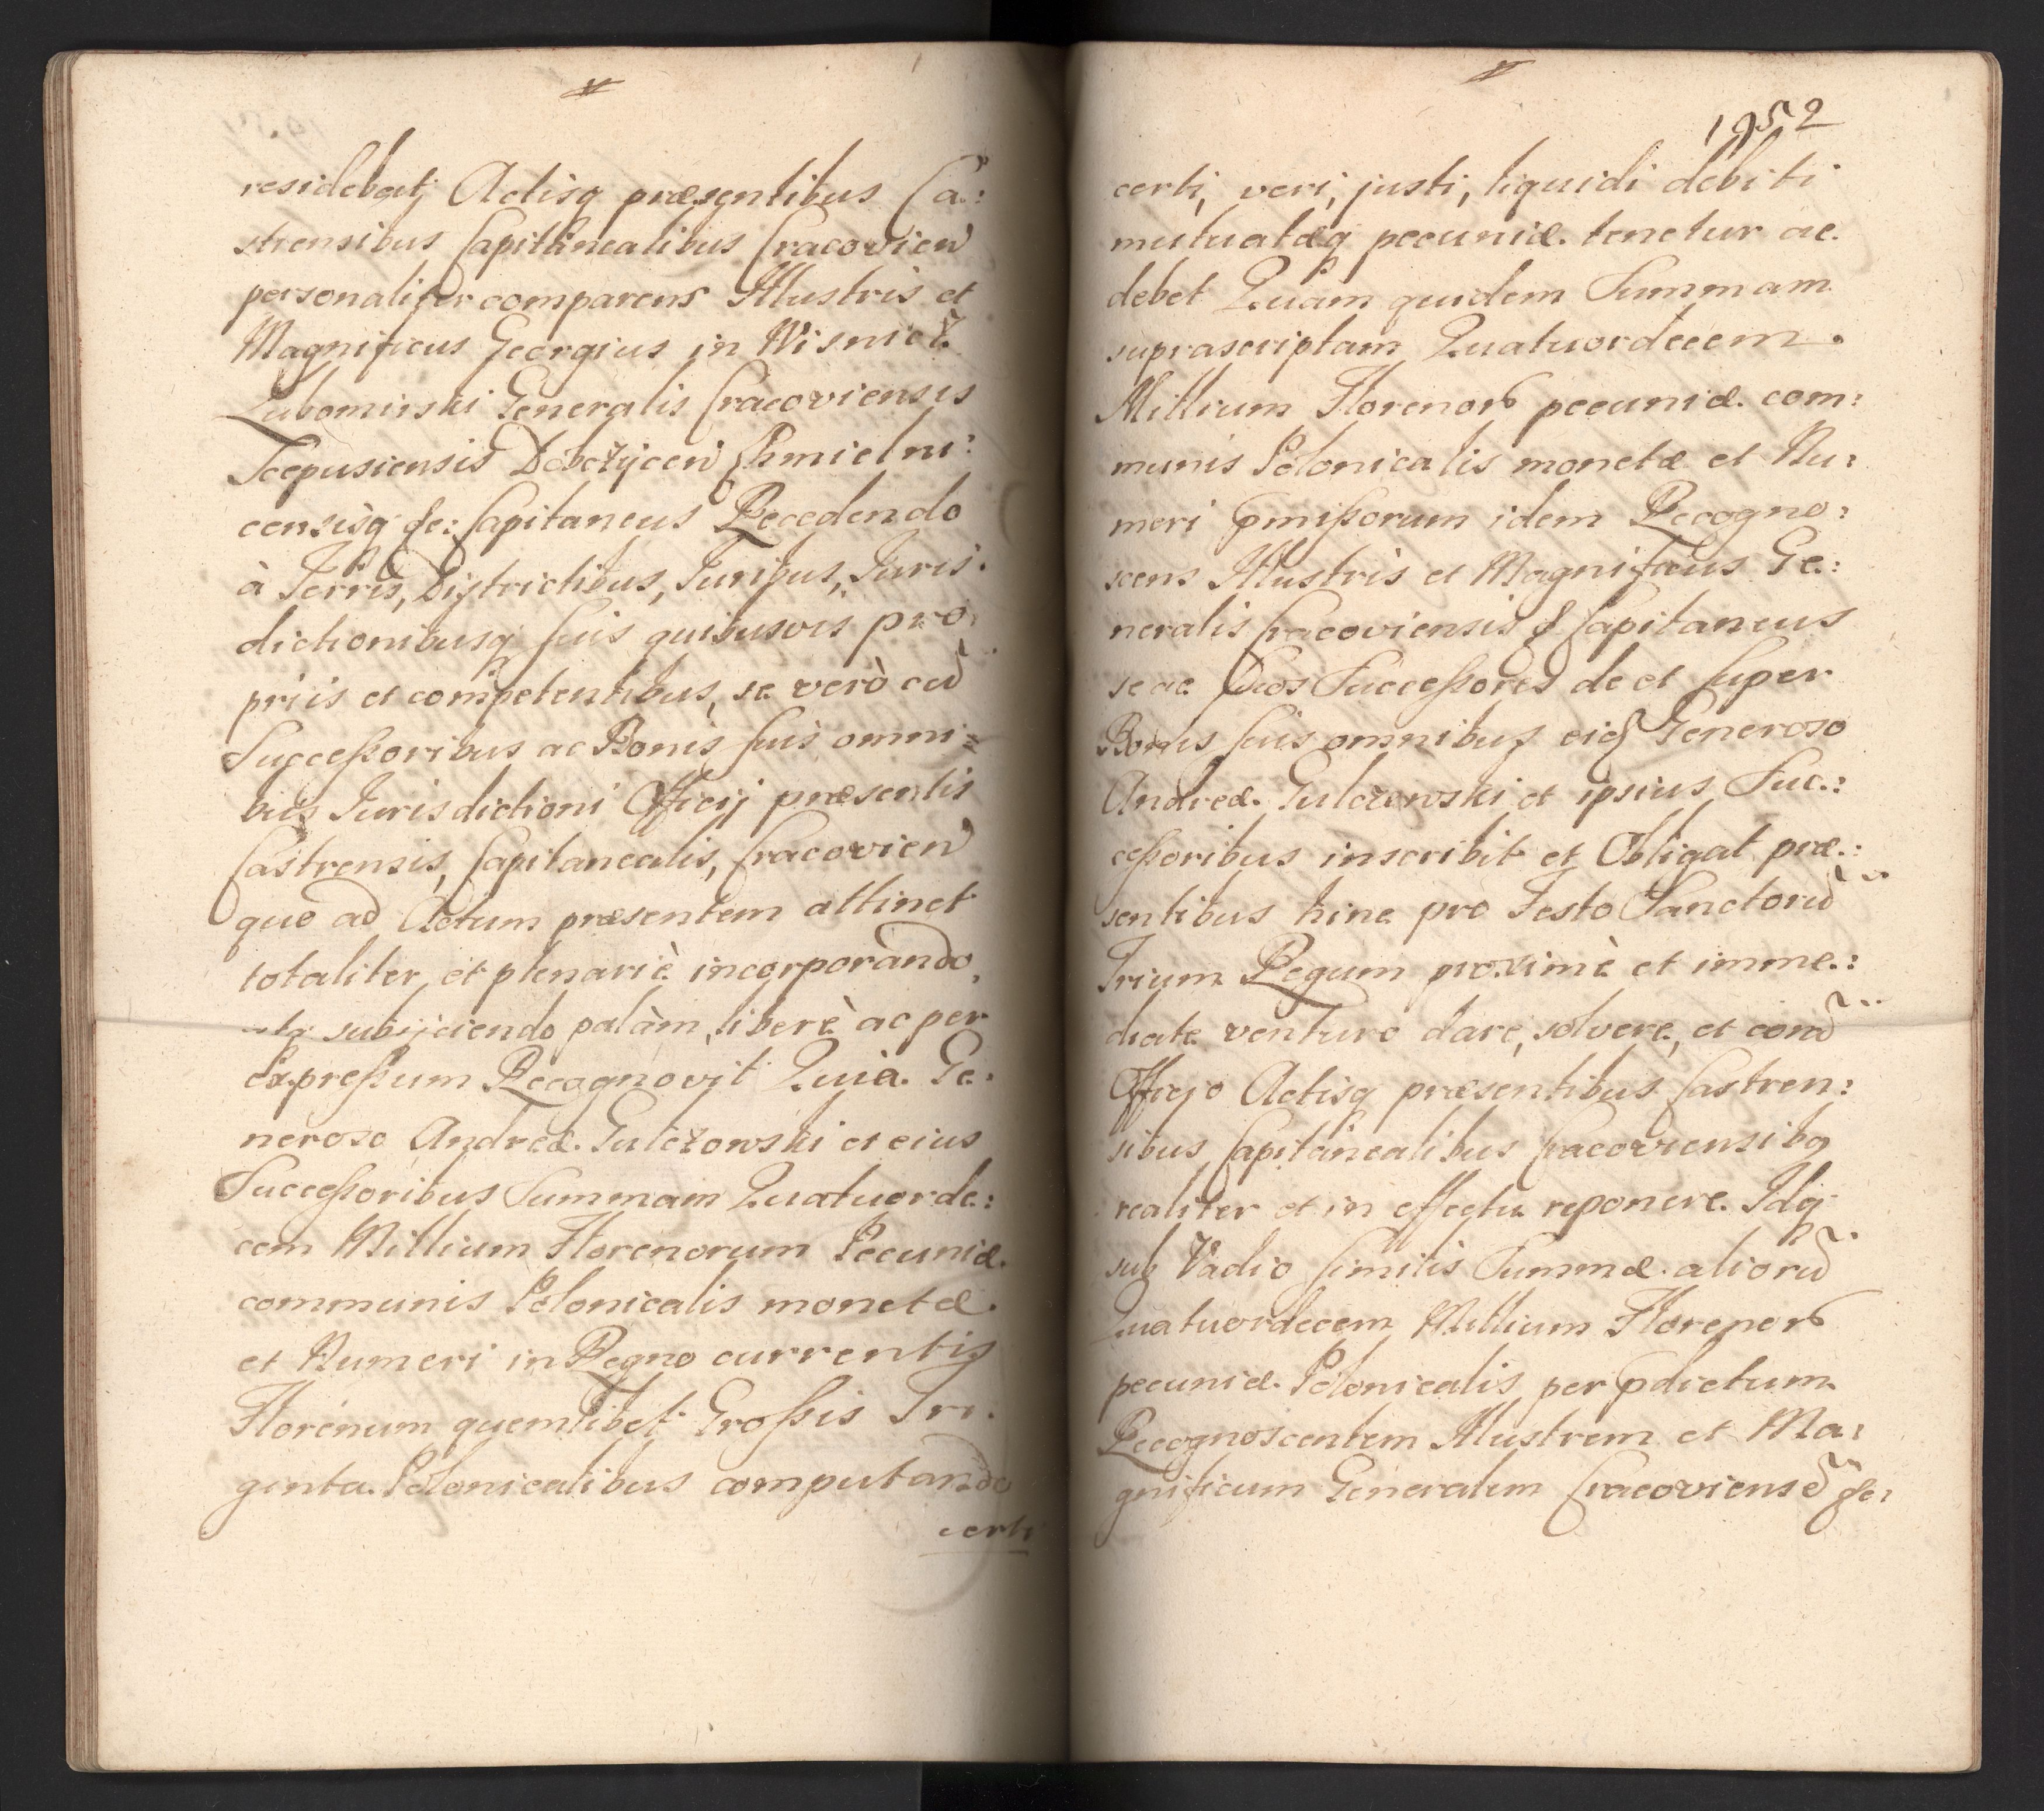 residebat Actisq præsentibus Ca:
strensibus Capitanealibus Cracovien
personaliter comparens Illustris et
Magnificus Georgius in Wisnicz
Lubomirski Generalis Cracoviensis
Scepusiensis Dobczÿcen Chmielni:
censisq &c: Capitaneus Recedendo
à Terris, Districtibus, Juribus, Juris
dictionibusq suis quibusvis pro
priis et competentibus, se verò cu
Successoribus ac Bonis suis omni
bus Jurisdictioni Officij præsentis
Castrensis, Capitanealis, Cracovien
quo ad Actum præsentem attinet
totaliter et plenariè incorporando,
subijciendo palàm, liberè ac per
Expressum Recognovit Quia Ge:
neroso Andreæ Gulczowski et eius
Successoribus Summam Quatuorde:
cem Millium Florenorum Pecuniæ
communis Polonicalis monetæ
et Numeri in Regno currentis
Florenum quemlibet Grossis Tri
ginta Polonicalibus computando
certi
1952
certi, veri, justi, liquidi debiti
mutuatæq pecuniæ tenetur ac
debet Quam quidem Summam
suprascriptam Quatuordecem
Millium Florenor pecuniæ com:
munis Polonicalis monetæ et Nu:
meri pmissorum idem Recogno:
scens Illustris et Magnificus Ge:
neralis Cracoviensis & Capitaneus
se ac Suos Successores de et super
Bonis suis omnibus eid Generoso
Andreæ Gulczowski et ipsius Suc:
cessoribus inscribit et Obligat præ:
sentibus hinc pro Festo Sanctoru
Trium Regum proximè et imme:
diate venturo dare, solvere, et cora
Officio Actisq præsentibus Castren:
sibus Capitanealibus Cracoviensibq
realiter et in effectu reponere. Idq
sub Vadio similis Summæ alioru
Quatuordecem Millium Florenor
pecuniæ Polonicalis per pdictum
Recognoscentem Illustrem et Ma:
gnificum Generalem Cracoviense &c: